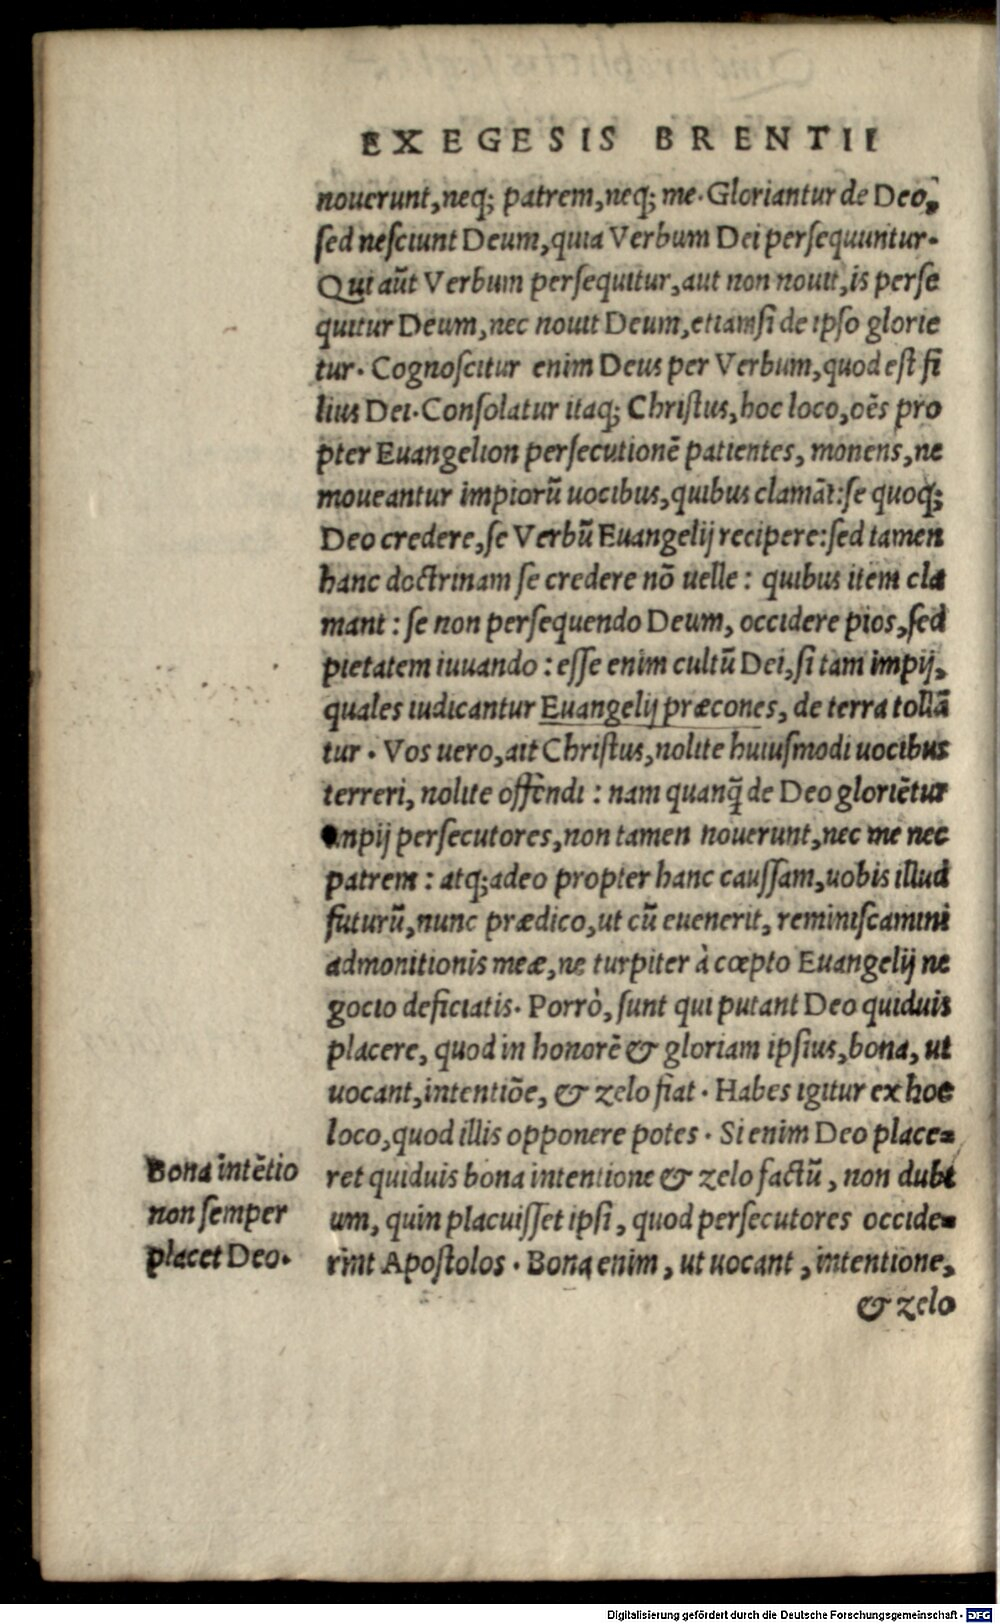 EXEGESIS BRENTII
nouerunt,neq; patrem,neq; me. Gloriantur de Deo,
sed nesciunt Deum,quia Verbum Dei persequuntur.
Qui aūt Verbum persequitur,aut non nouit,is perse
quitur Deum,nec nouit Deum,etiamsi de ipso glorie
tur. Cognoscitur enim Deus per Verbum,quod est fi
lius Dei. Consolatur itaq; Christus,hoc loco,oēs pro
pter Euangelion persecutionē patientes, monens,ne
moueantur impiorū uocibus,quibus clamāt:se quoq;
Deo credere,se Verbū Euangelij recipere:sed tamen
hanc doctrinam se credere nō uelle: quibus item cla
mant: se non persequendo Deum, occidere pios,sed
pietatem iuuando: esse enim cultū Dei,si tam impij,
quales iudicantur Euangelij præcones, de terra tollā
tur. Vos uero,ait Christus,nolite huiusmodi uocibus
terreri, nolite offendi: nam quanq̄ de Deo gloriētur
impij persecutores,non tamen nouerunt,nec me nec
patrem: atq;adeo propter hanc caussam,uobis illud
futurū,nunc prædico,ut cū euenerit, reminiscamini
admonitionis meæ,ne turpiter à cœpto Euangelij ne
gocio deficiatis. Porrò, sunt qui putant Deo quiduis
placere, quod in honorē & gloriam ipsius,bona, ut
uocant,intentiōe, & zelo fiat. Habes igitur ex hoc
loco,quod illis opponere potes. Si enim Deo place=
Bona intētio
non semper
placet Deo.
ret quiduis bona intentione & zelo factū, non dubi
um, quin placuisset ipsi, quod persecutores occide=
rint Apostolos. Bona enim, ut uocant, intentione,
& zelo
Digitalisierung gefördert durch die Deutsche Forschungsgemeinschaft - DFG